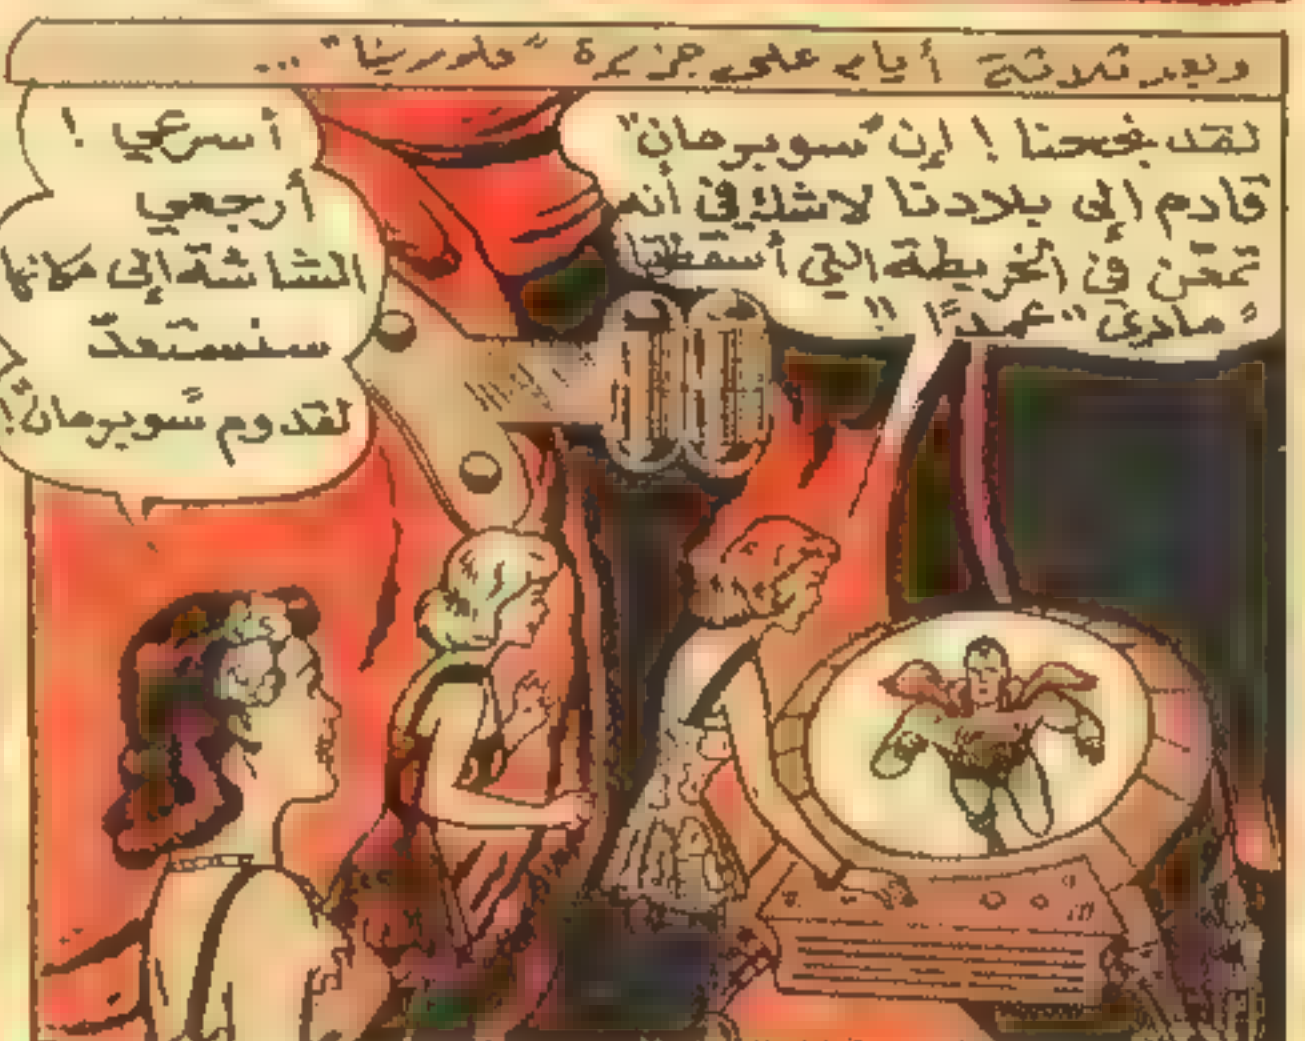 وبعد ثلاثة أيام على جزيرة "فلورينا" ...
لقد نجحنا ! إن "سوبرمان"
قادم إلى بلادنا لاشك في أنه
تمعّن في الخريطة التي أسقطتها
"ماري" عمدًا !!
أسرعي !
أرجعي
الشاشة إلى مكانها
سنستعدّ
لقدوم سوبرمان !